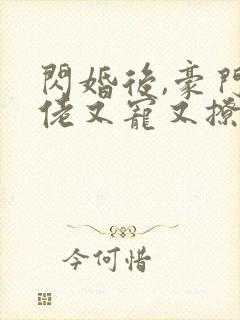 閃婚後,豪門
佬又寵又撩
今何惜